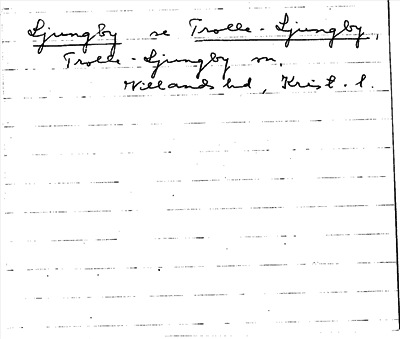 Ljungby se Trolle-Ljungby,
Trolle-Ljungby sn,
Willands hd, Krist. l.